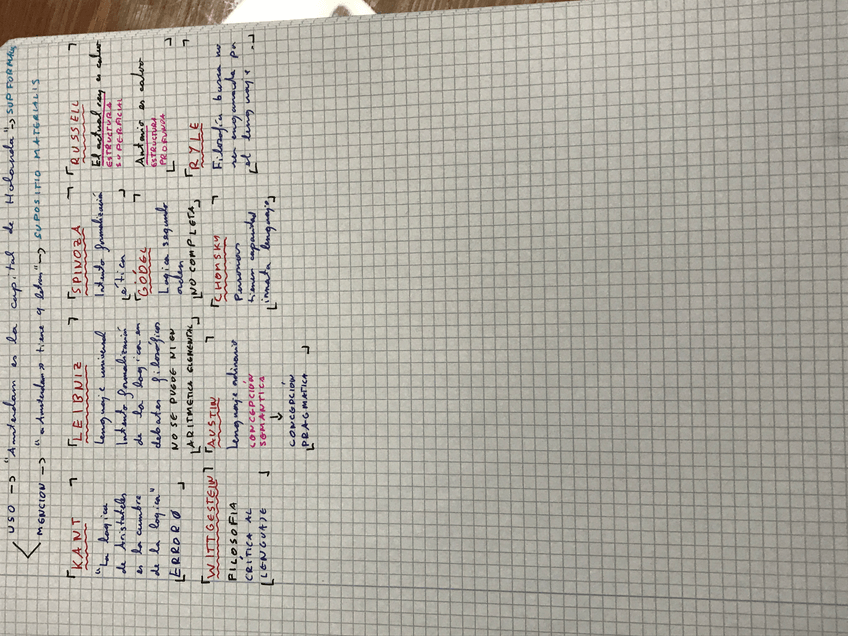 USO -> "Amsterdam es la capital de Holanda" -> SUP FORMAL
MENCION -> "«Amsterdam» tiene 9 letras" -> SUPOSITIO MATERIALIS
KANT
"La logica
de Aristoteles
es la cumbre
de la logica"
ERROR
LEIBNIZ
Lenguaje universal
Intento formalización
de la logica en
debates filosóficos
NO SE PUEDE NI EN
ARITMETICA ELEMENTAL
SPINOZA
Intento formalización
ética
GÖDEL
Logica segundo
orden
NO COMPLETA
RUSSELL
El actual rey es calvo
ESTRUCTURA
SUPERFICIAL
Antonio es calvo
ESTRUCTURA
PROFUNDA
WITTGESTEIN
FILOSOFIA
CRITICA AL
LENGUAJE
AUSTIN
Lenguaje ordinario
CONCEPCIÓN
SEMANTICA
↓
CONCEPCIÓN
PRAGMATICA
CHOMSKY
Personas
tienen capacidad
innata lenguaje
RYLE
Filosofía busca no
ser engañada por
el lenguaje